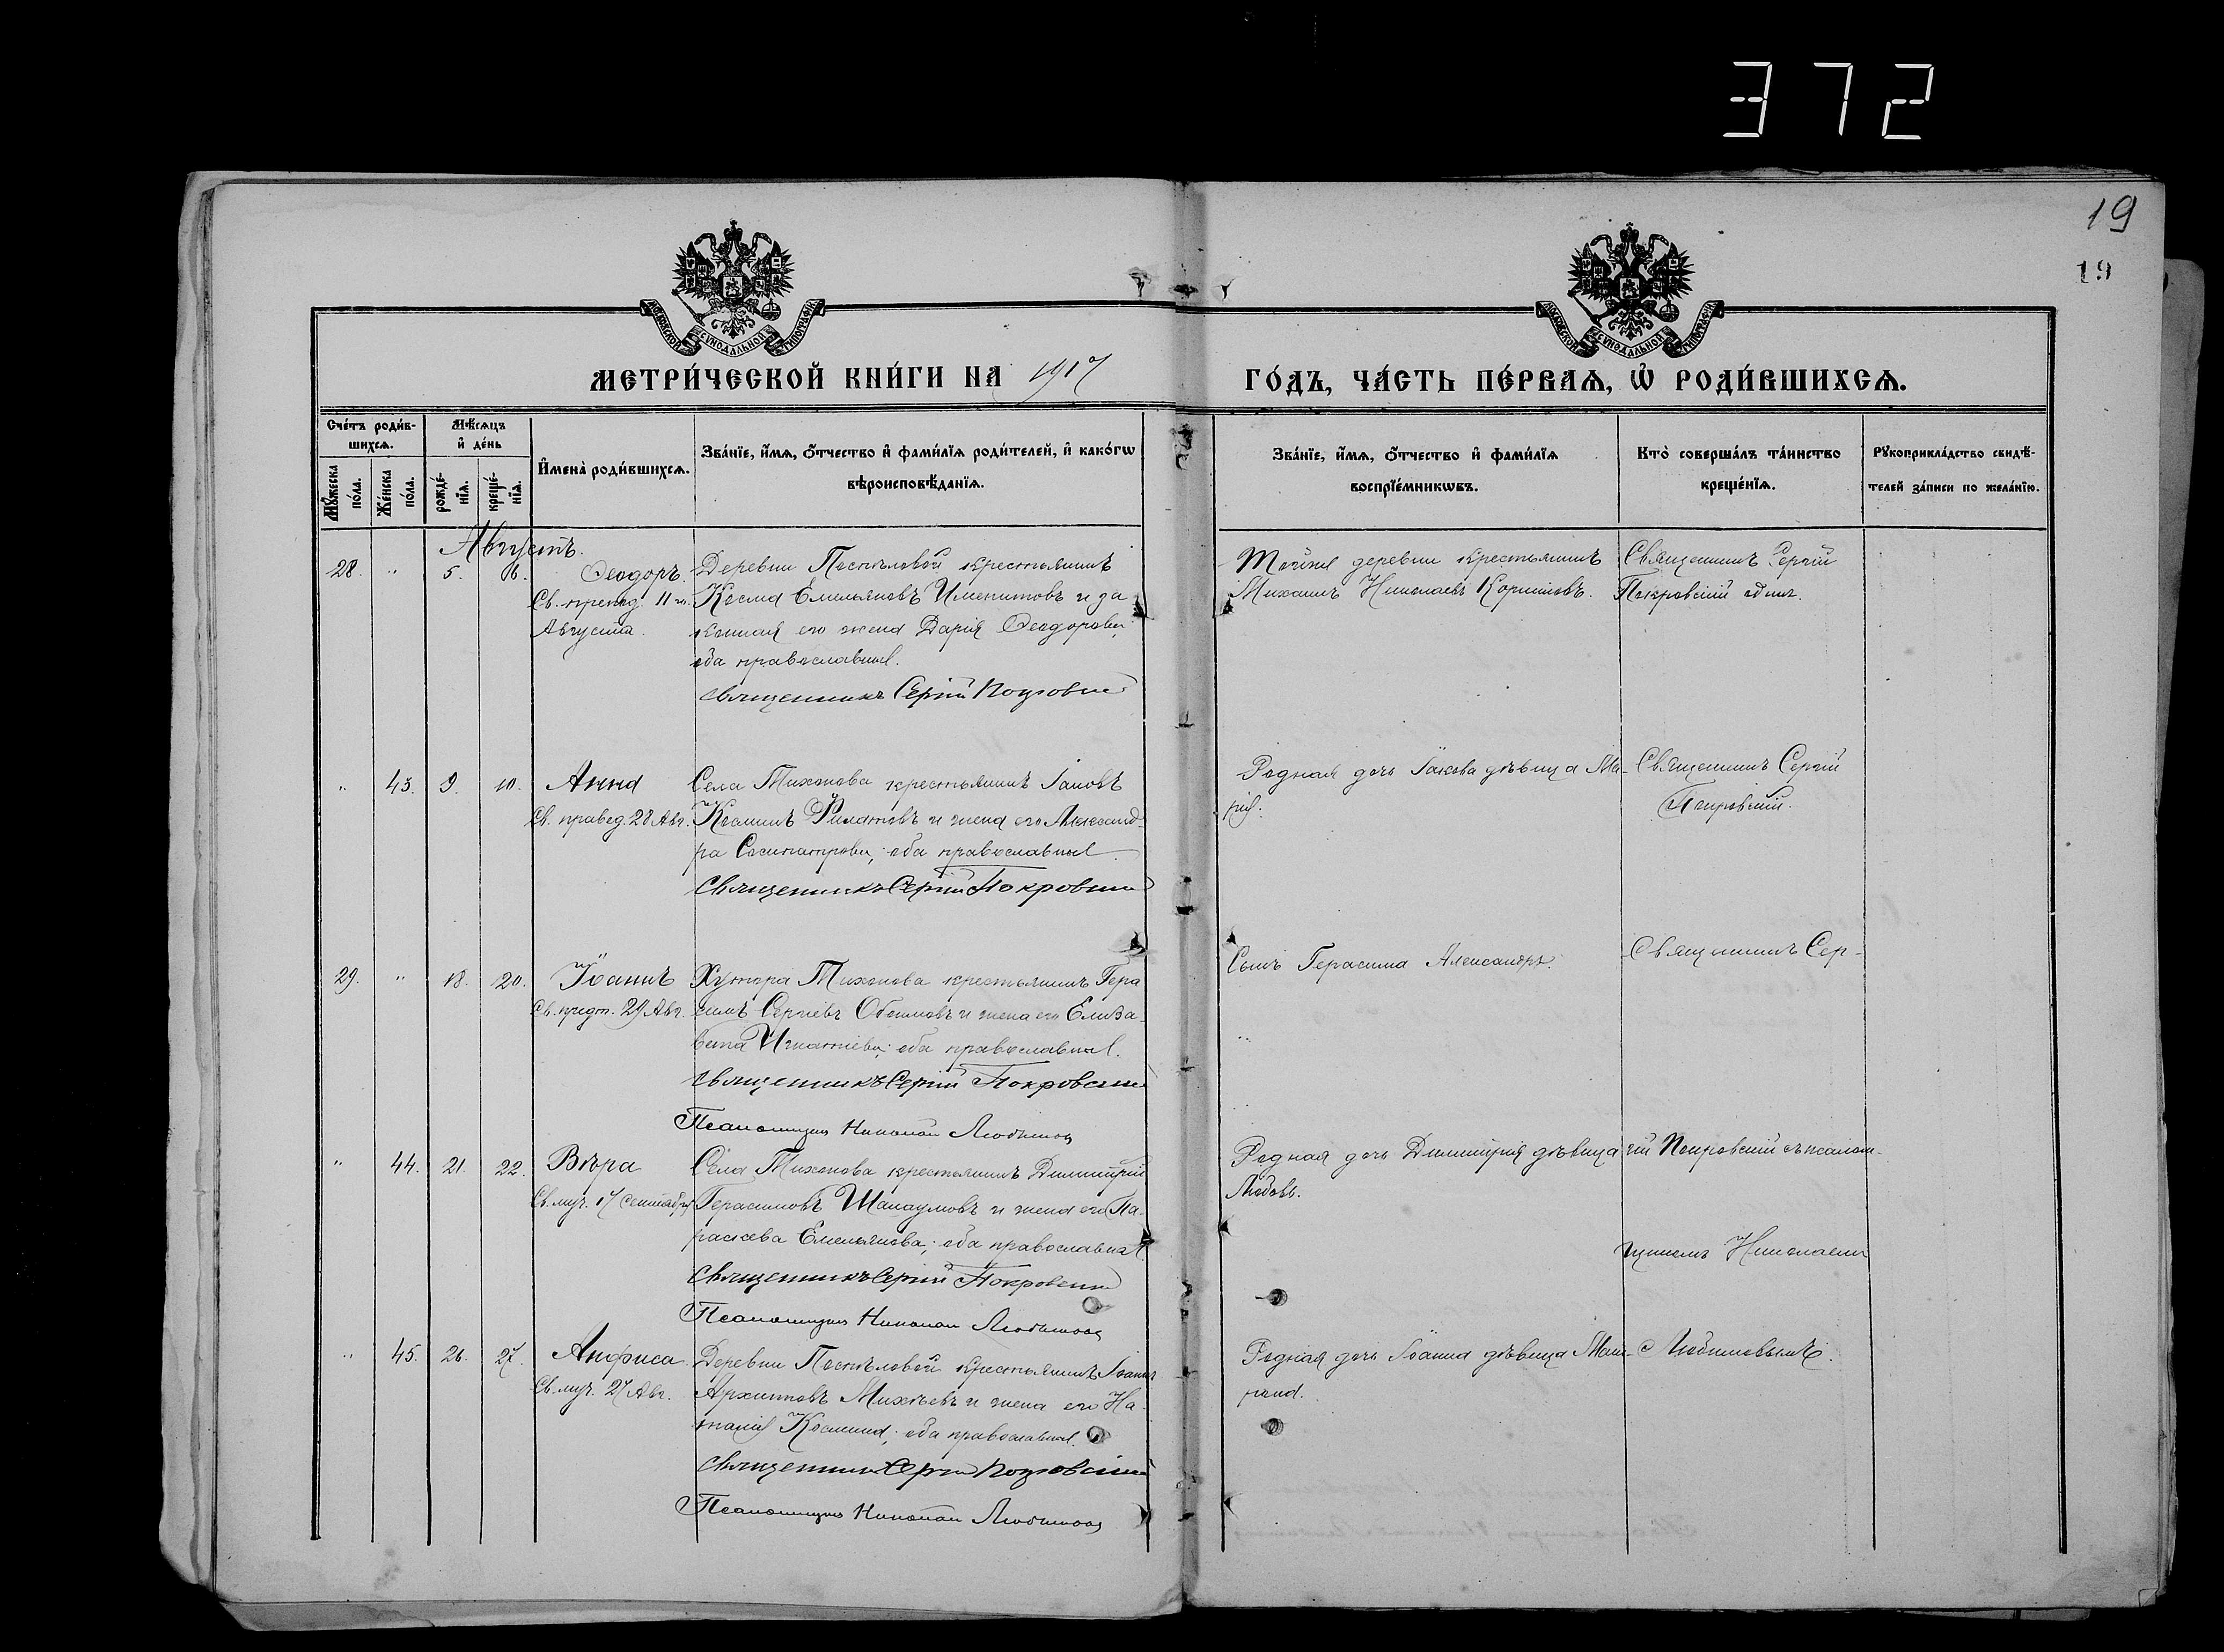 372
19
19
МОСКОВСКОЙ СѴНОДАЛЬНОЙ ТИПОГРАФІИ
МОСКОВСКОЙ СѴНОДАЛЬНОЙ ТИПОГРАФІИ
МЕТРИ́ЧЕСКОЙ КНИ́ГИ НА 1917
ГО́ДЪ, ЧА́СТЬ ПЕ́РВАѦ, Ѡ҆ РОДИ́ВШИХСѦ.
Сче́тъ роди́в-
шихсѧ.
Мѣ́сѧцъ
и҆ де́нь
Мꙋ́жеска
по́ла.
Же́нска
по́ла.
рожде́-
нїѧ.
креще́-
нїѧ.
И҆мена̀ роди́вшихсѧ.
Зва́нїе, и҆́мѧ, ѻ҆́тчество и҆ фами́лїѧ роди́телей, и҆ како́гѡ
вѣроисповѣ́данїѧ.
Зва́нїе, и҆́мѧ, ѻ҆́тчество и҆ фами́лїѧ
воспрїе́мникѡвъ.
Кто̀ соверша́лъ та́инство
креще́нїѧ.
Рꙋкоприкла́дство свидѣ́-
телей за́писи по жела́нїю.
Августъ.
28. " 5. 6. Ѳеодоръ.
Св. препод. 11 го
Августа.
Деревни Поспѣловой крестьянинъ
Косма Емельяновъ Именитовъ и за
конная его жена Дарія Ѳеодорова,
оба православные.
Священникъ Сергій Покровскій
Тойже деревни крестьянинъ
Михаилъ Николаевъ
Священникъ Сергій
Покровскій одинъ.
" 43. 9. 10. Анна
Св. правед. 28 Авг.
Села Тихонова крестьянинъ Іаковъ
Косминъ Филатовъ и жена его Александ-
ра Сосипатрова; оба православные
Священникъ Сергій Покровскій
Родная дочь Іакова дѣвица Ма-
рія.
Священникъ Сергій
Покровскій.
29. " 18. 20. Іоаннъ
Св. предт. 29 Авг.
Хутора Тихонова крестьянинъ Гера
симъ Сергіевъ и жена его Елиза-
вета Игнатіева; оба православные.
Священникъ Сергій Покровскій
Псаломщикъ Николай Любимовъ
Сынъ Герасима Александръ.
Священникъ Сер-
" 44. 21. 22. Вѣра
Св. муч. 17 Сентября
Села Тихонова крестьянинъ Димитрій
Герасимовъ Шалаумовъ и жена его Па-
раскева Емельянова; оба православные
Священникъ Сергій Покровскій
Псаломщикъ Николай Любимовъ
Родная дочь Димитрія дѣвица
Любовь.
гій Покровскій съ псалом-
щикомъ Николаем
" 45. 26. 27. Анфиса
Св. муч. 27 Авг.
Деревни Поспѣловой крестьянинъ Іоаннъ
Архиповъ Михѣевъ и жена его На-
талія Космина; оба православные.
Священникъ Сергій Покровскій
Псаломщикъ Николай Любимовъ
Родная дочь Іоанна дѣвица
Любимовымъ.